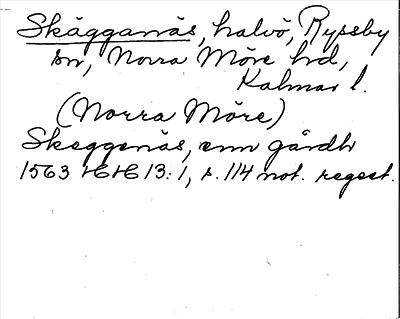 Skäggenäs, halvö, Ryssby
sn, Norra Möre hd,
Kalmar l.
(Norra Möre)
Skeggenäs, enn gårdh
1563 HH 13:1, s. 114 not. regest.